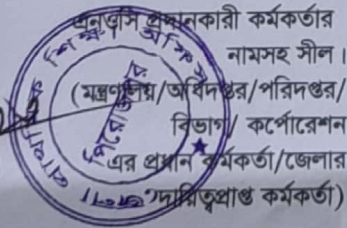 এনওসি প্রদানকারী কর্মকর্তার
নামসহ সীল।
(মন্ত্রণালয়/অধিদপ্তর/পরিদপ্তর/
বিভাগ/ কর্পোরেশন
এর প্রধান কর্মকর্তা/জেলার
দায়িত্বপ্রাপ্ত কর্মকর্তা)
জেলা প্রাথমিক শিক্ষা অফিস
পিরোজপুর